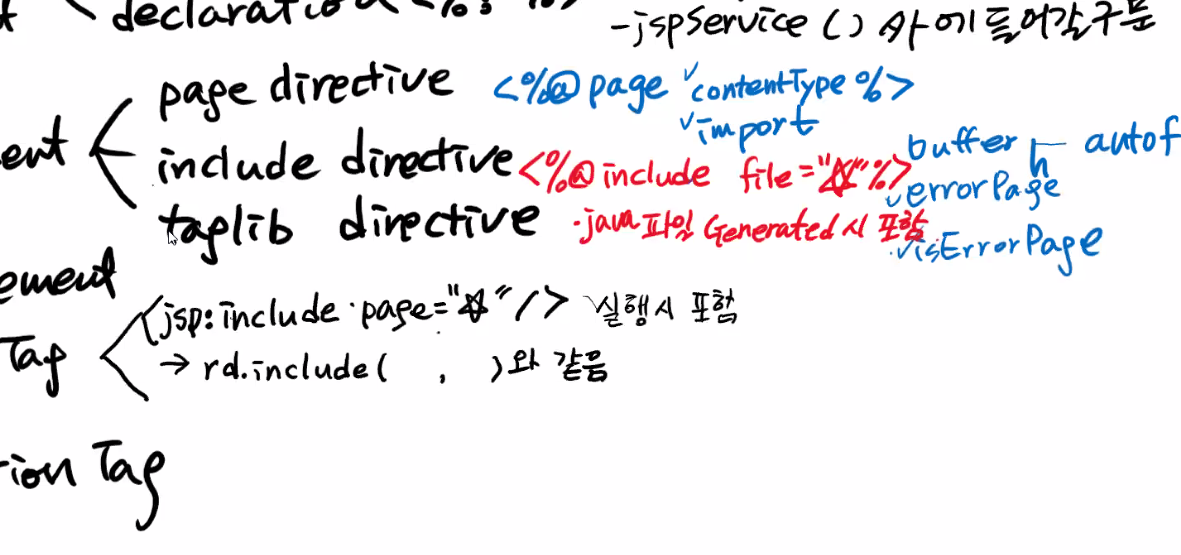 declaration <%! %>
-jspService () 사이에 들어갈 구문
page directive <%@ page contentType %>
import
ent
include directive <%@ include file="☆"%>
buffer autof
errorPage
taglib directive .java파일 Generated시 포함.
isErrorPage
ement
Tag
jsp:include page="☆"/> 실행시 포함
→ rd.include( , )와 같음
tion Tag